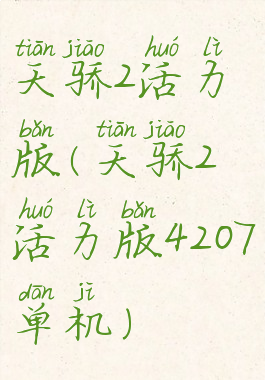 tiān jiāo huó lì
天骄2活力
bǎn tiān jiāo
版(天骄2
huó lì bǎn
活力版4207
dān jī
单机)